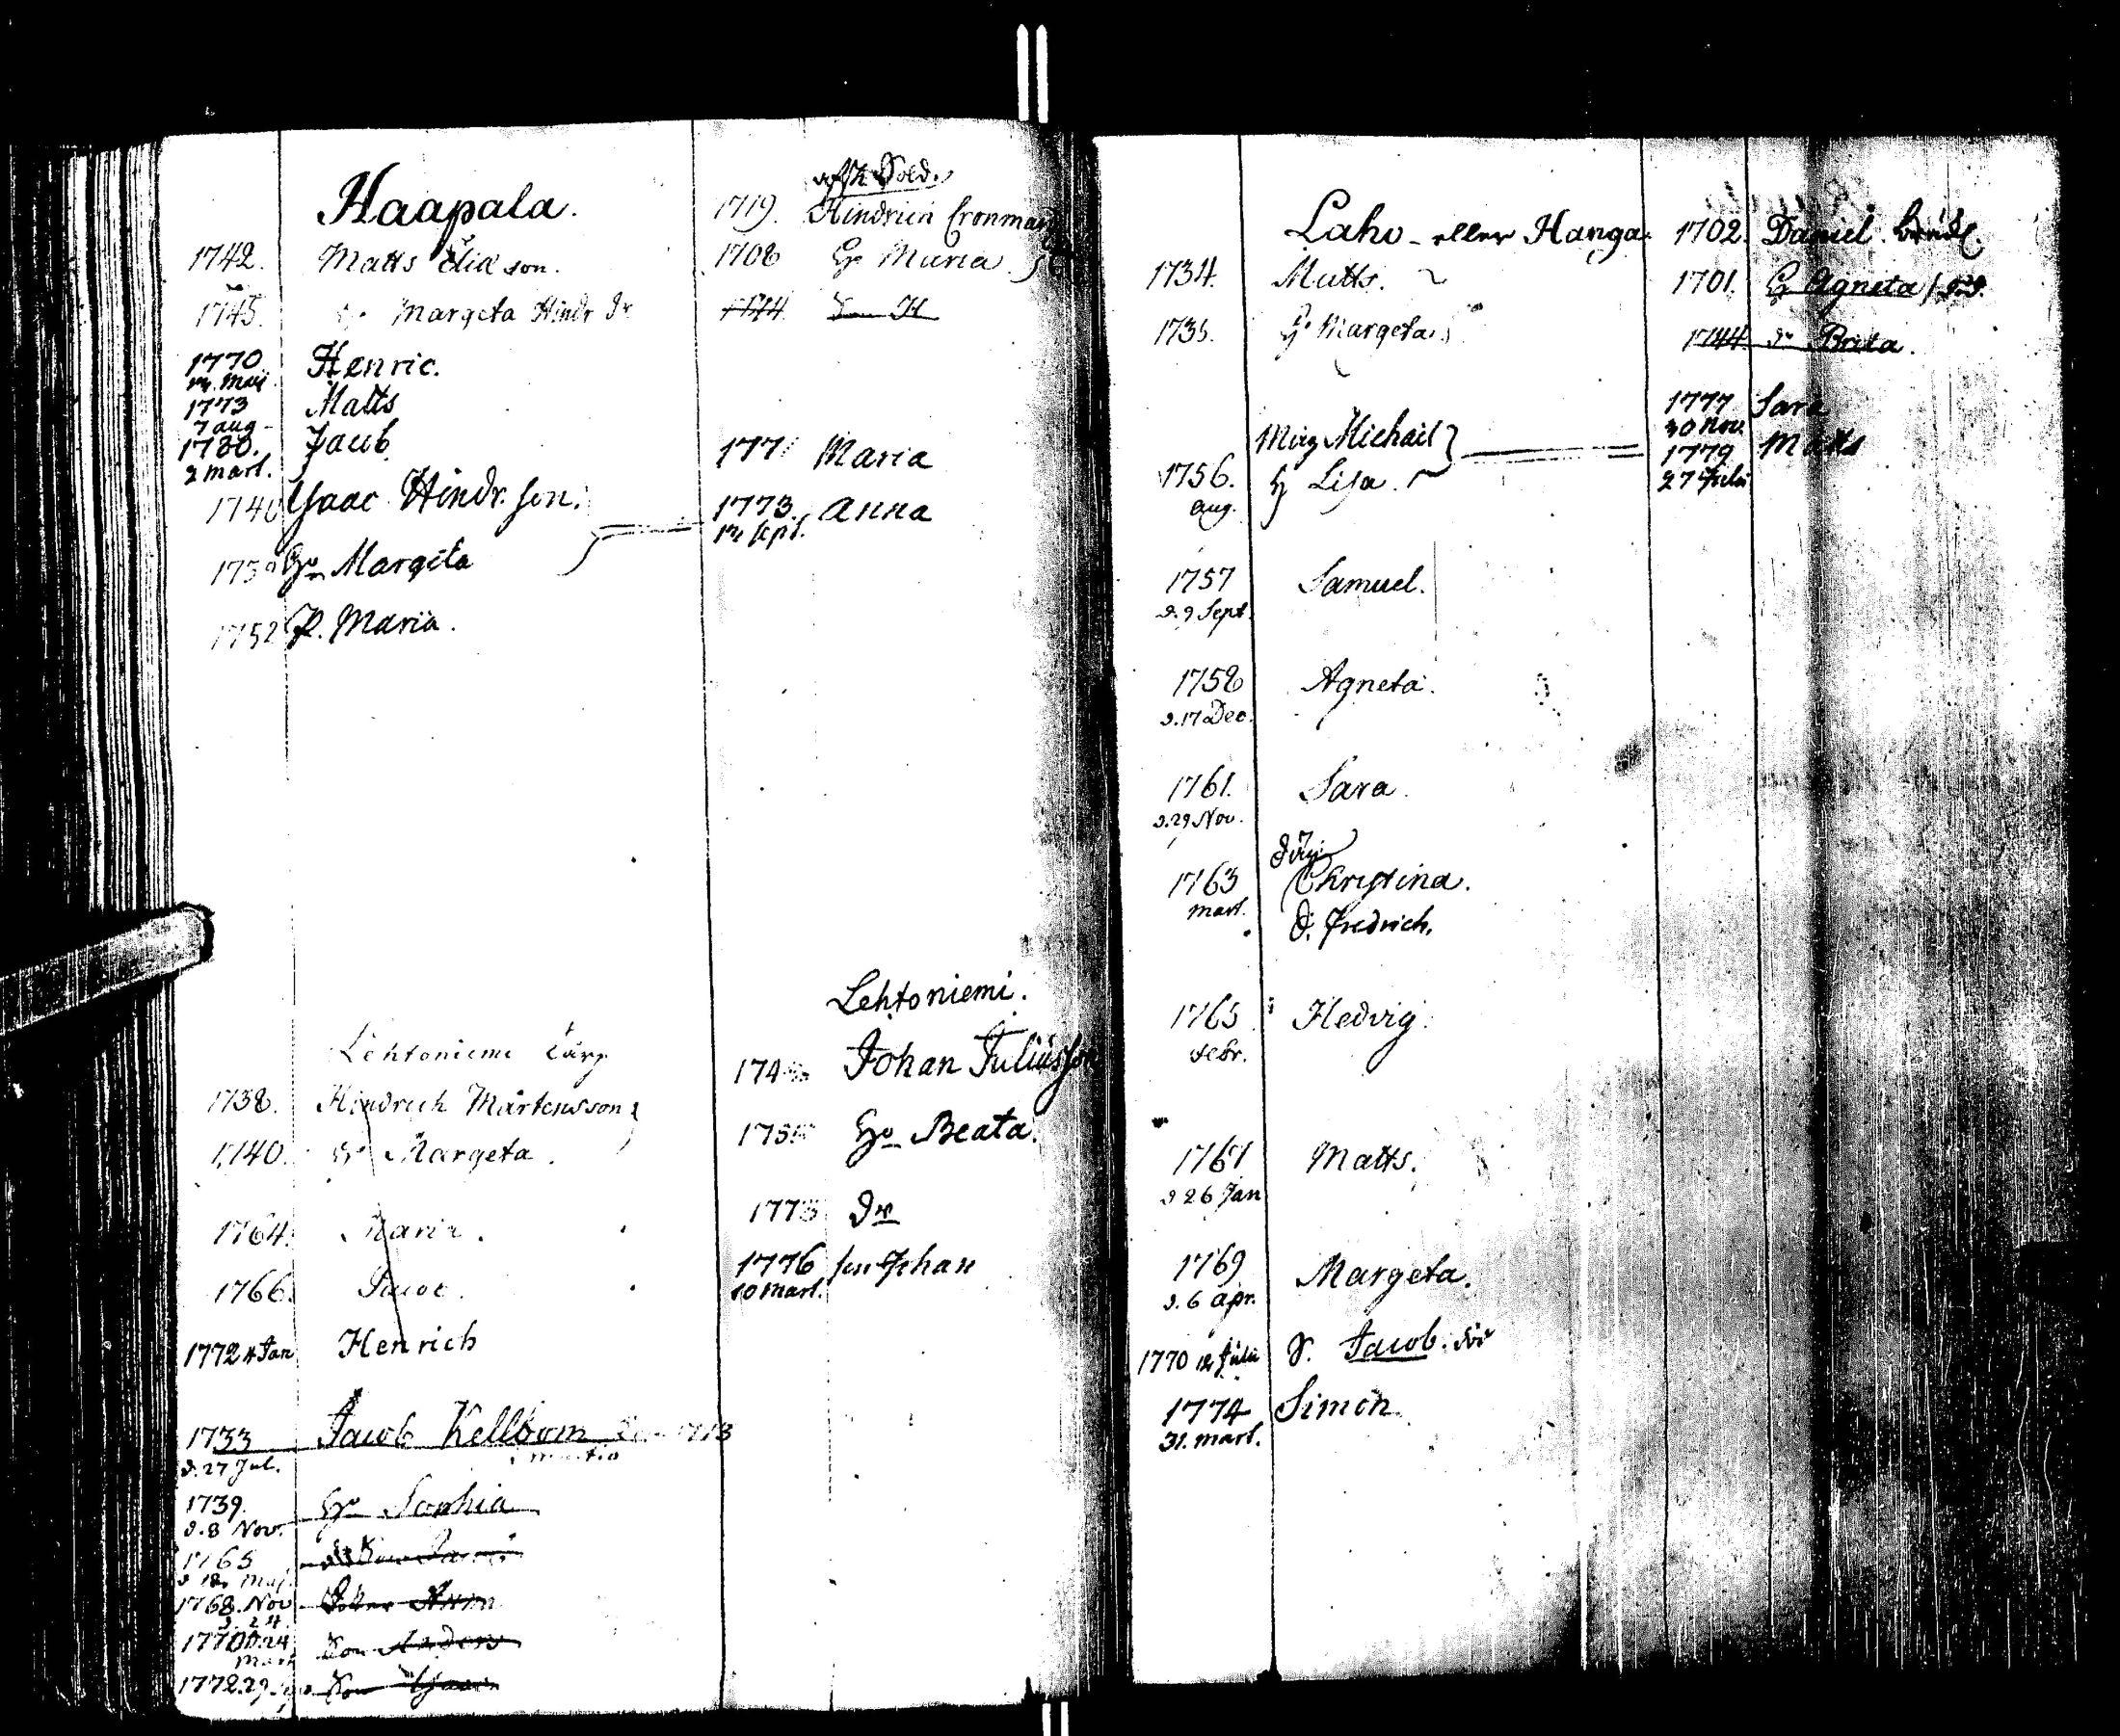 Haapala.
1742. Matts Elia son.
1745. Margeta Hindr dr
1770 Henric.
Maij
1773 Matts
7 aug
1780. Jacob
2 mart.
Isaac Hindr. son.
Hu Margeta
1752 P. Maria.
Sold.
1719. Hindrich Cronman
1708 H. Maria
1744
177 Maria
1773. Anna
Sept.
Lehtoniemi torp
1738. Hindrich Mårtensson
1740. Margeta.
1764. Maria.
1766. Jacob.
1772 4 Jan Henrich
1733 Jacob Kellbom
d. 27 Jul.
1739. Hu Sophia
d. 8 Nov.
1765
d 18 Maj.
1768. Nov Anna
d. 24
1770 d. 24 Son Anders
Mart
1772. 29 Son
Lehtoniemi.
174 Johan Juliusson
175 Hu Beata.
1773 dr
1776 son Johan
10 Mart.
Laho - eller Hanga.
1734. Matts.
1735. H. Margeta.
Måg Michail
1756. H Lisa.
Aug.
1757 Samuel.
d. 9 Sept.
1758 Agneta.
d. 17 Dec.
1761. Sara.
d. 29 Nov.
1763 Christina.
Mart.
d. Fredrich.
1765 Hedvig.
Febr.
1767 Matts.
d 26 Jan
1769 Margeta.
d. 6 Apr.
1770 12 Julii S. Jacob. död
1774 Simon.
31. Mart.
1702. Daniel.
1701. H Agneta / död.
1744 dr Brita.
1777 Sara
30 Nov.
1779 Matts
27 Julii